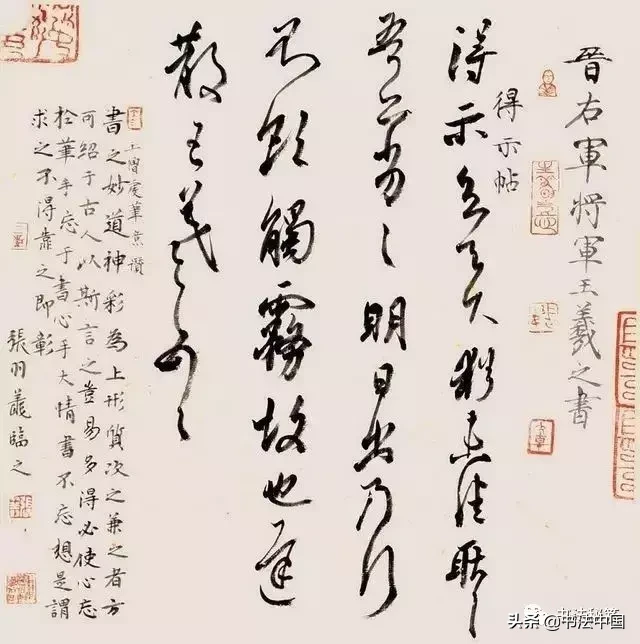 晉右軍將軍王羲之書
得示帖
得示知足下猶未佳耿耿
吾亦劣劣明日出乃行
不欲觸霧故也遲
散王羲之頓首
王僧虔筆意贊
書之妙道神彩為上形質次之兼之者方
可紹于古人以斯言之豈易多得必使心忘
於筆手忘于書心手大情書不忘想是謂
求之不得靠之即彰
張羽臨之
头条 @书法中国